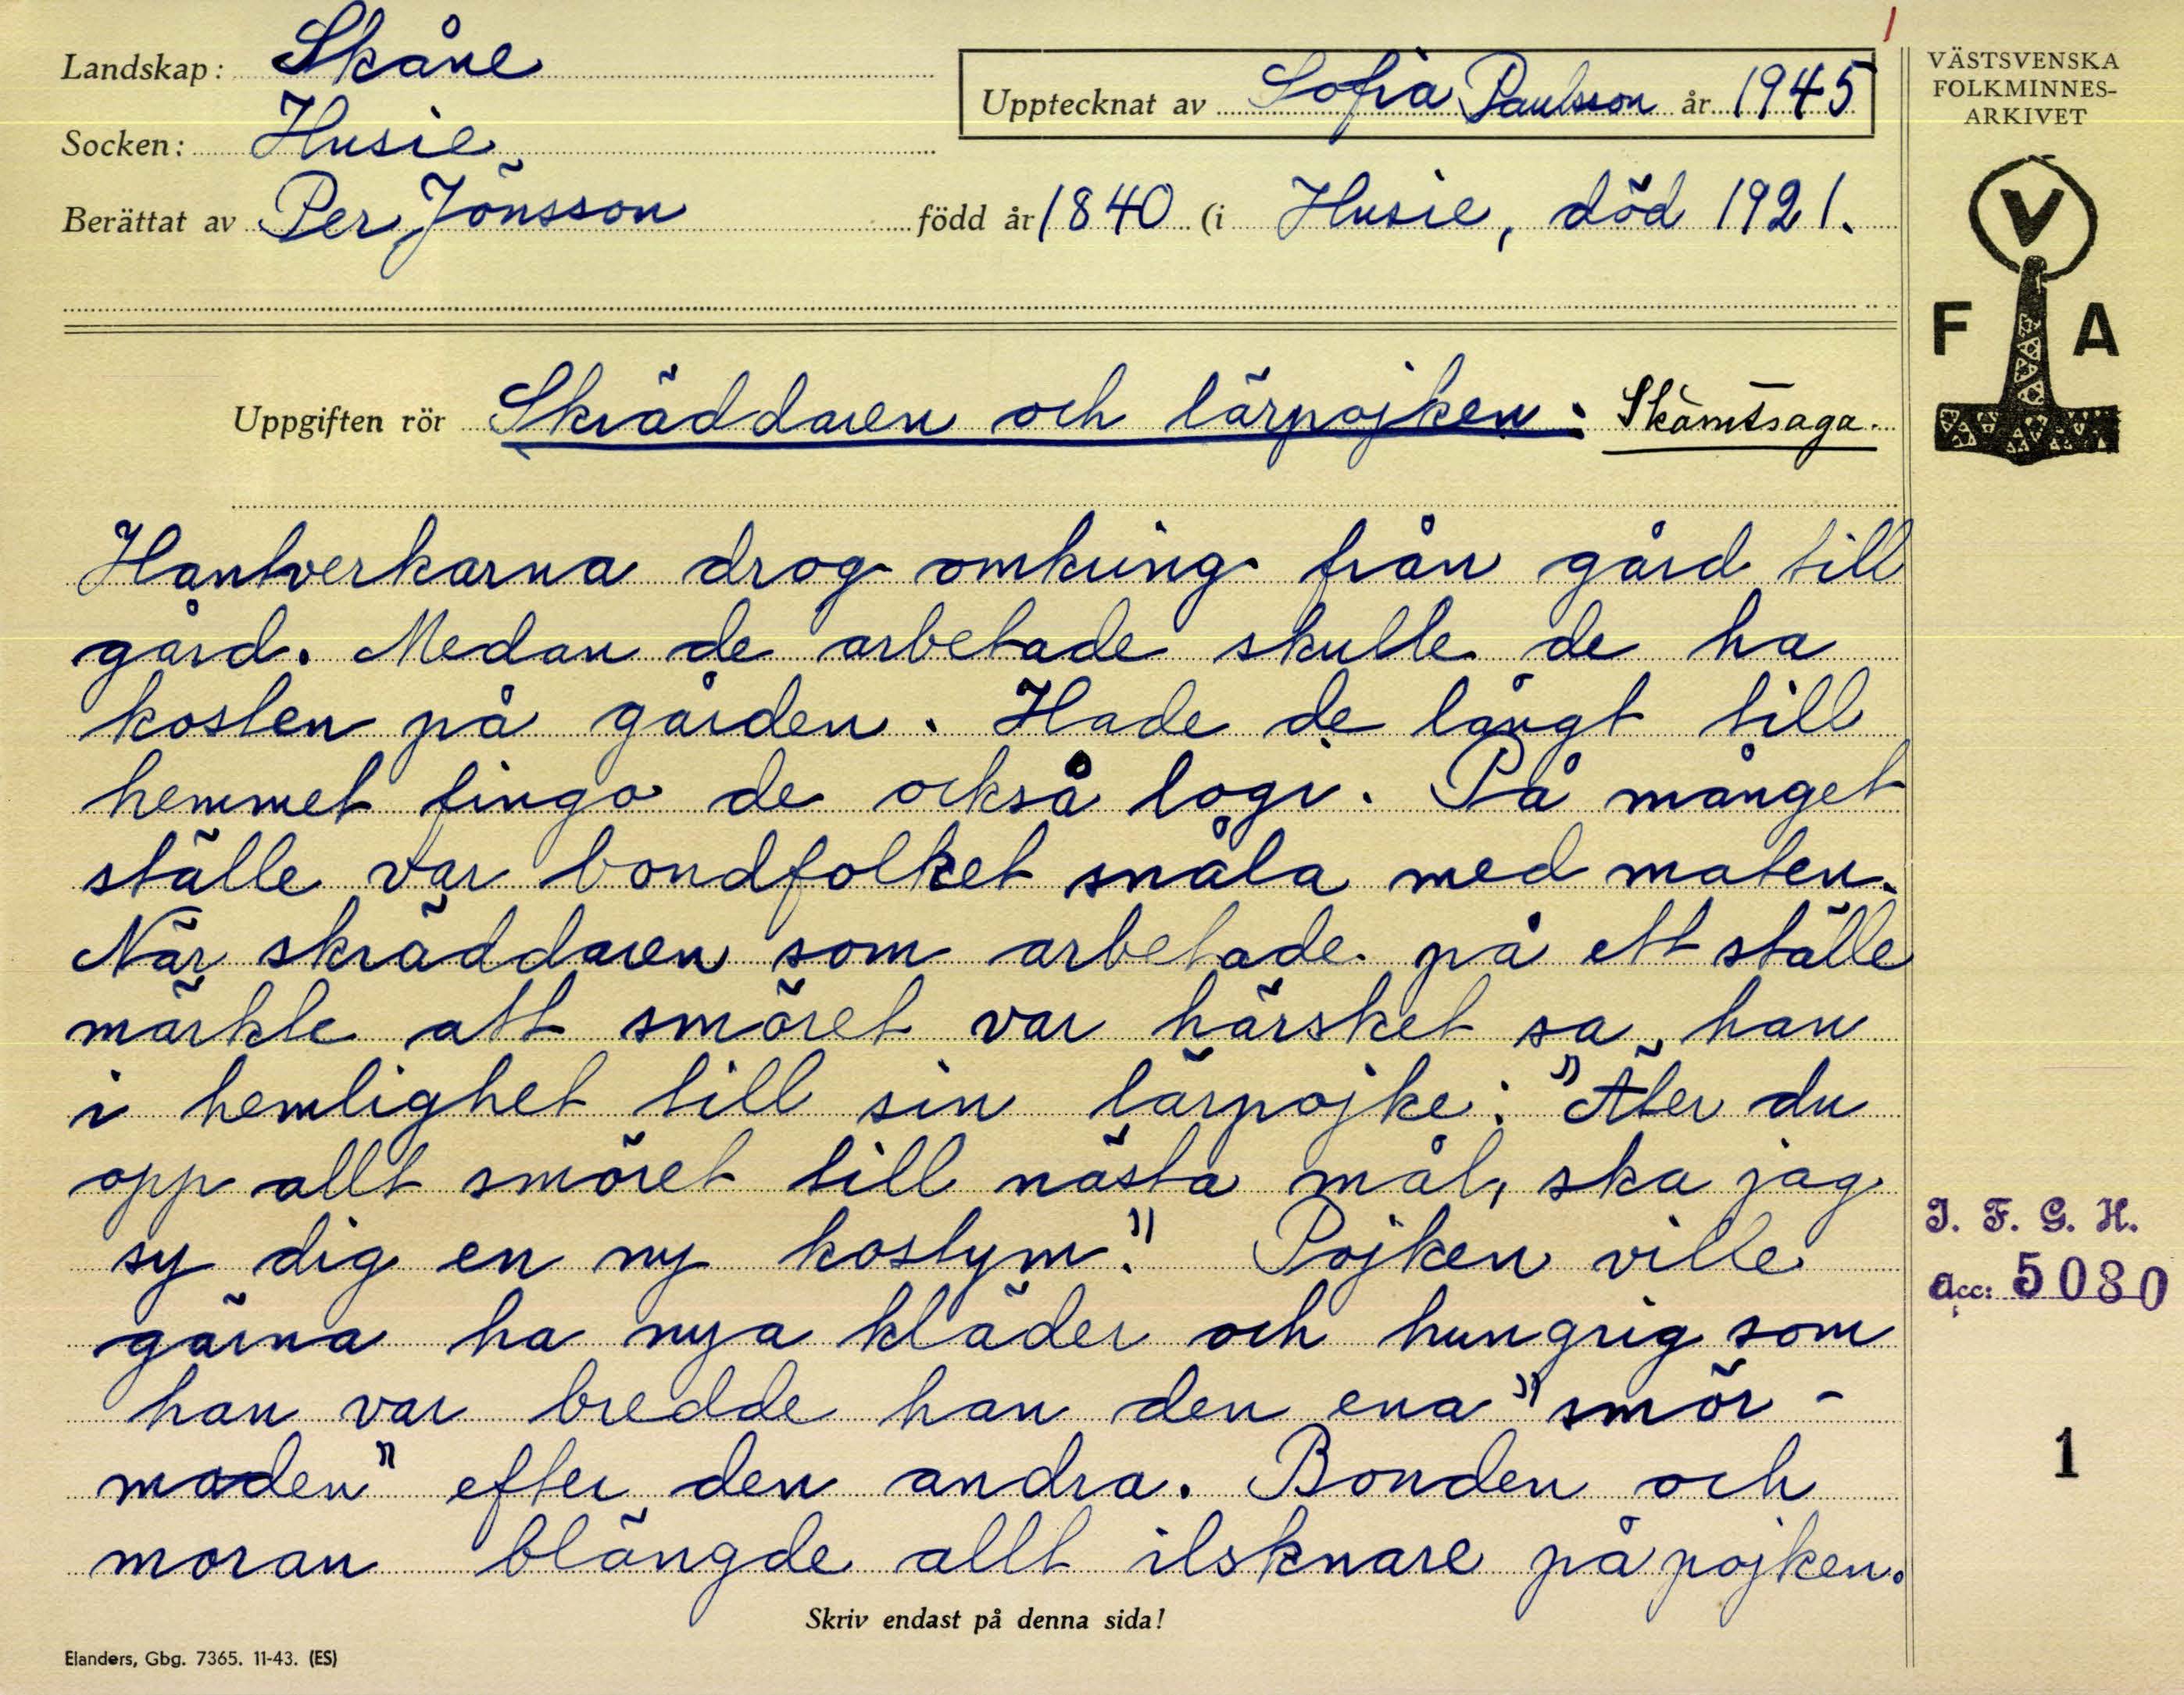 Landskap: Skåne
Upptecknat av Sofia Paulsson år 1945
1
VÄSTSVENSKA
FOLKMINNES-
ARKIVET
Socken: Husie
Berättat av Per Jönsson född år 1840 (i Husie, död 1921.
V
F A
Uppgiften rör Skräddaren och lärpojken. Skämtsaga.
Hantverkarna drog omkring från gård till
gård. Medan de arbetade skulle de ha
kosten på gården. Hade de långt till
hemmet fingo de också logi. På månget
ställe var bondfolket snåla med maten.
När skräddaren som arbetade på ett ställe
märkte att smöret var härsket sa han
i hemlighet till sin lärpojke: "Äter du
opp allt smöret till nästa mål, ska jag
sy dig en ny kostym." Pojken ville
gärna ha nya kläder och hungrig som
han var bredde han den ena "smör-
maden" efter den andra. Bonden och
moran blängde allt ilsknare på pojken.
I. F. G. H.
Acc: 5080
1
Skriv endast på denna sida!
Elanders, Gbg. 7365. 11-43. (ES)